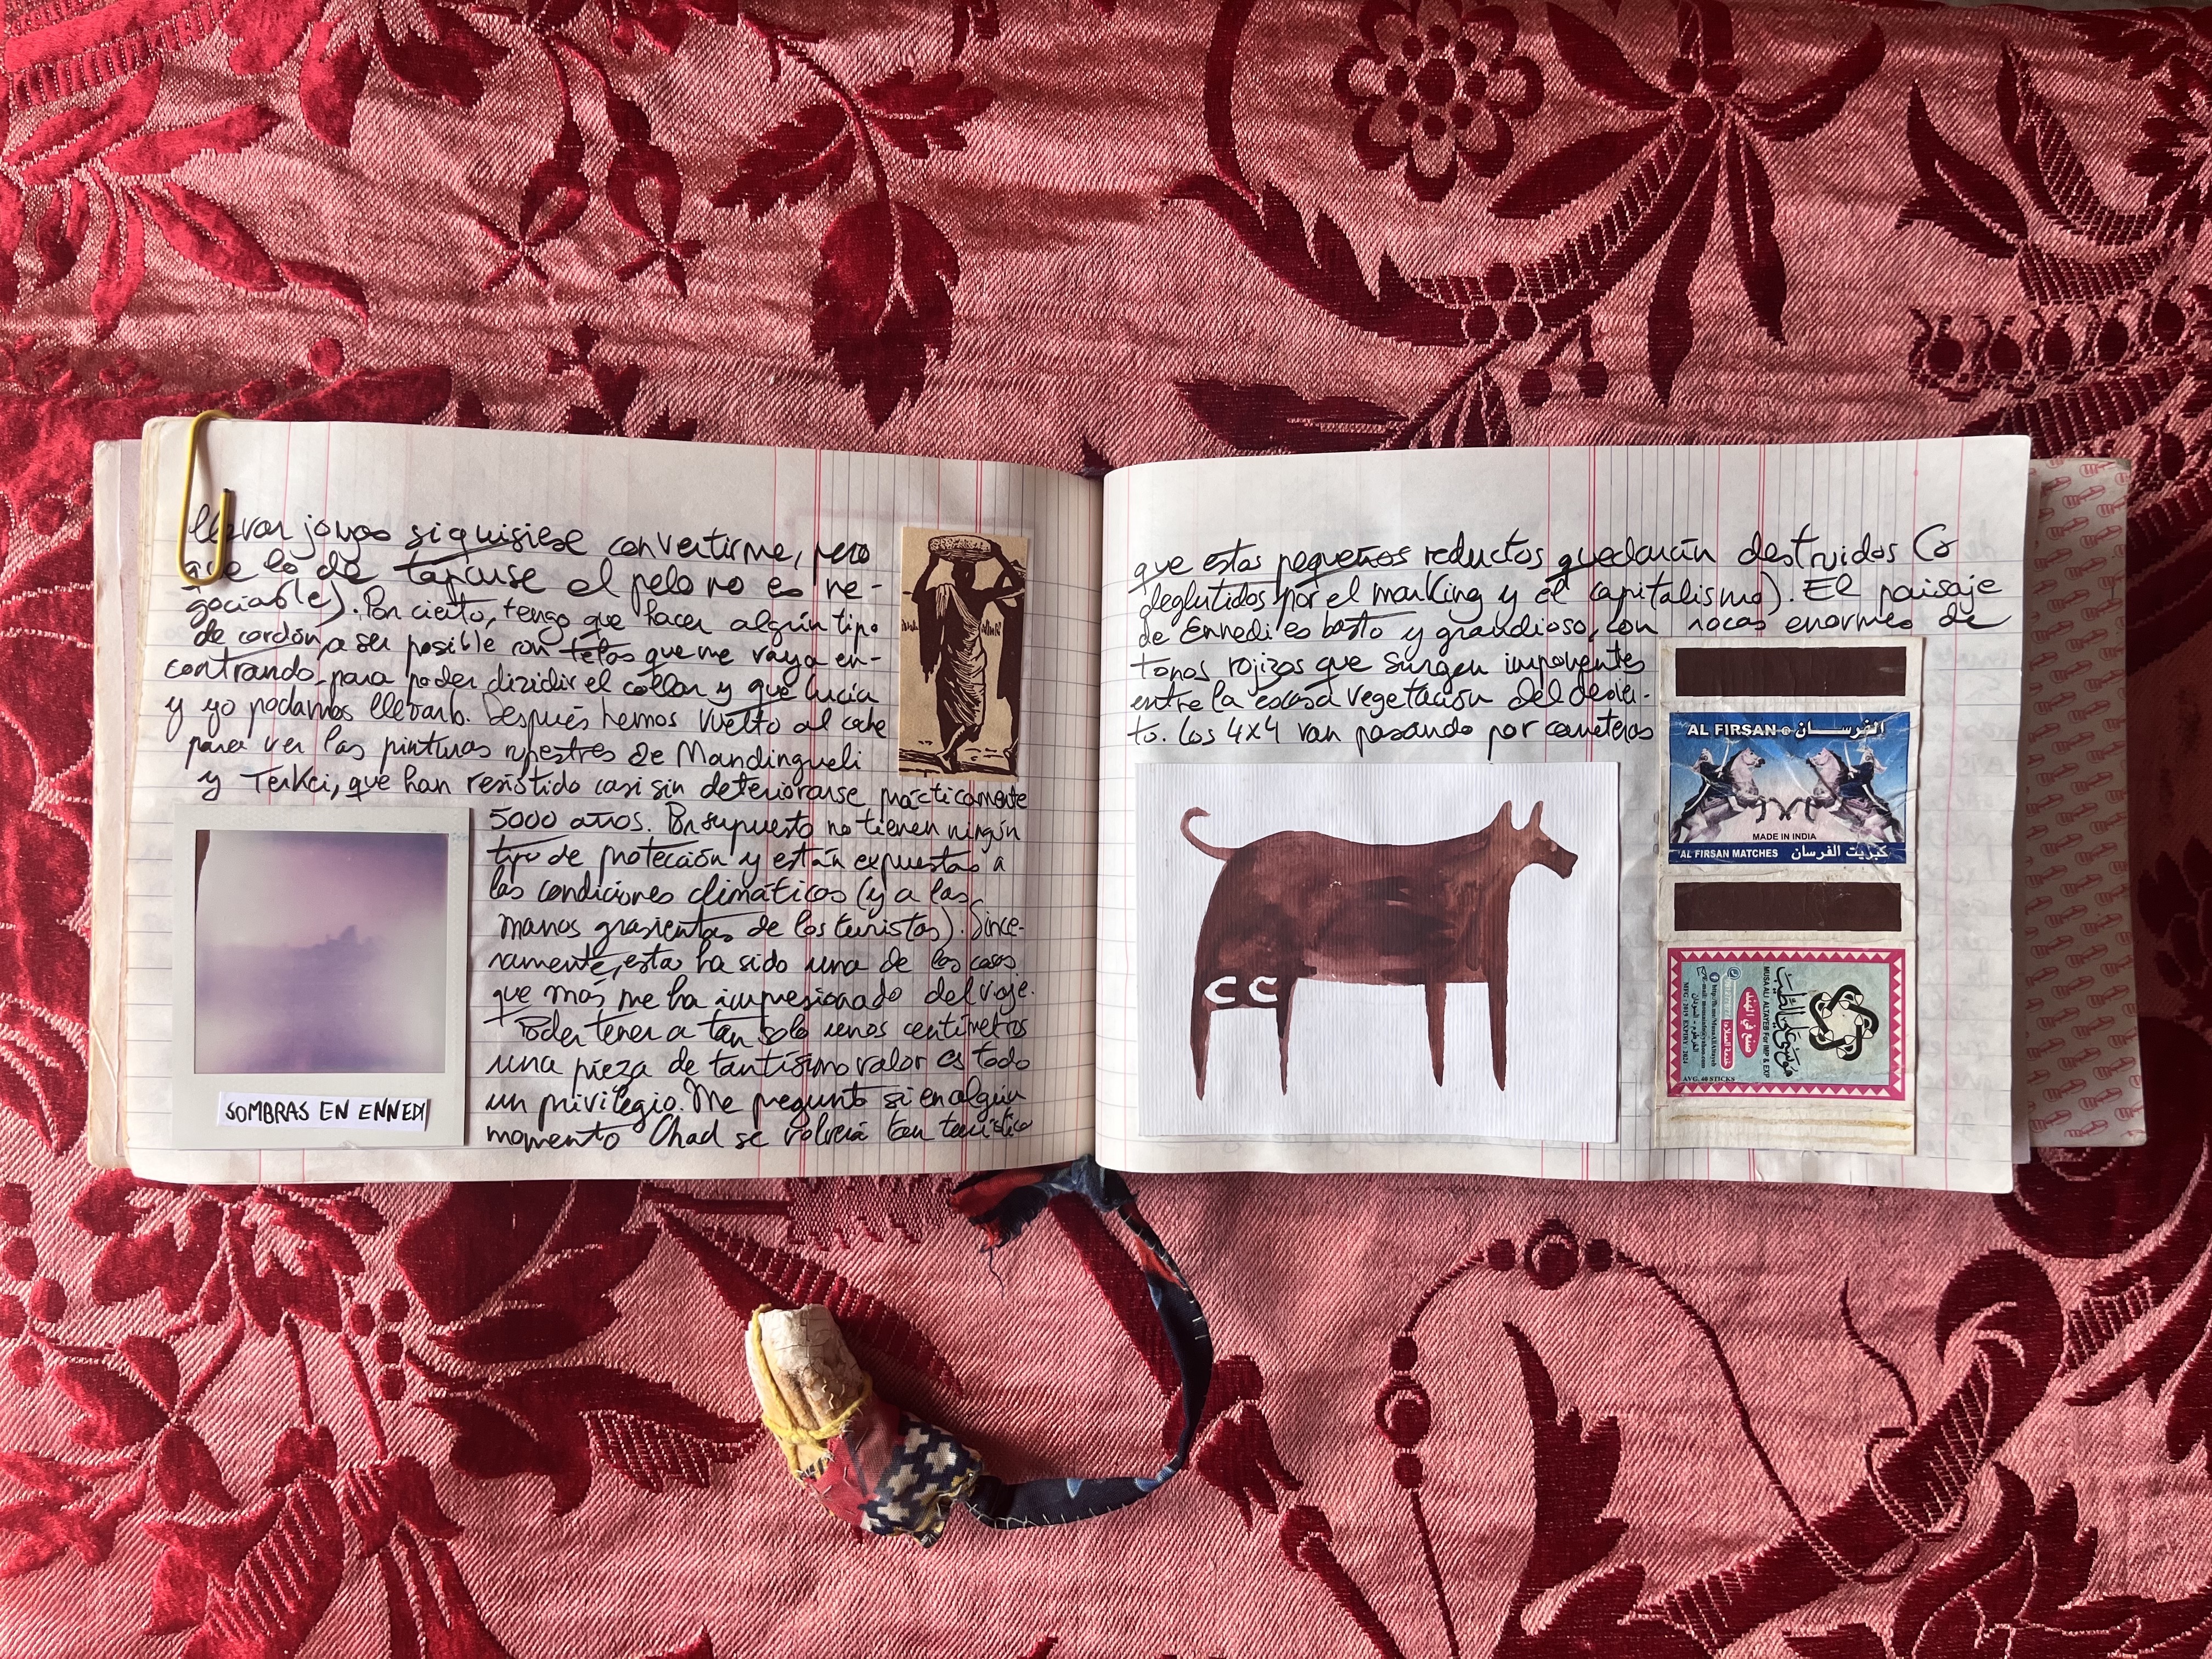 llevar joyas si quisiese convertirme, pero
que lo de taparse el pelo no es ne-
gociable). Por cierto, tengo que hacer algún tipo
de cordón, a ser posible con telas que me vaya en-
contrando, para poder dividir el collar y que Lucía
y yo podamos llevarlo. Después hemos vuelto al coche
para ver las pinturas rupestres de Mandingueli
y Terkei, que han resistido casi sin deteriorarse prácticamente
5000 años. Por supuesto no tienen ningún
tipo de protección y están expuestas a
las condiciones climáticas (y a las
manos grasientas de los turistas). Since-
ramente, esta ha sido una de las cosas
que más me ha impresionado del viaje.
Poder tener a tan solo unos centímetros
una pieza de tantísimo valor es todo
un privilegio. Me pregunto si en algún
momento Chad se volverá tan turístico
SOMBRAS EN ENNEDI
que estos pequeños reductos quedarán destruidos (o
deglutidos por el marking y el capitalismo). El paisaje
de Ennedi es basto y grandioso, con rocas enormes de
tonos rojizos que surgen imponentes
entre la escasa vegetación del desier-
to. Los 4x4 van pasando por carreteras
CC
AL FIRSAN ® الفرسان
MADE IN INDIA
AL FIRSAN MATCHES كبريت الفرسان
موسى علي الطيب
MUSA ALI ALTAYEB For IMP & EXP
صنع في الهند
MFG : 2019 EXPIRY : 2024
AVG. 40 STICKS